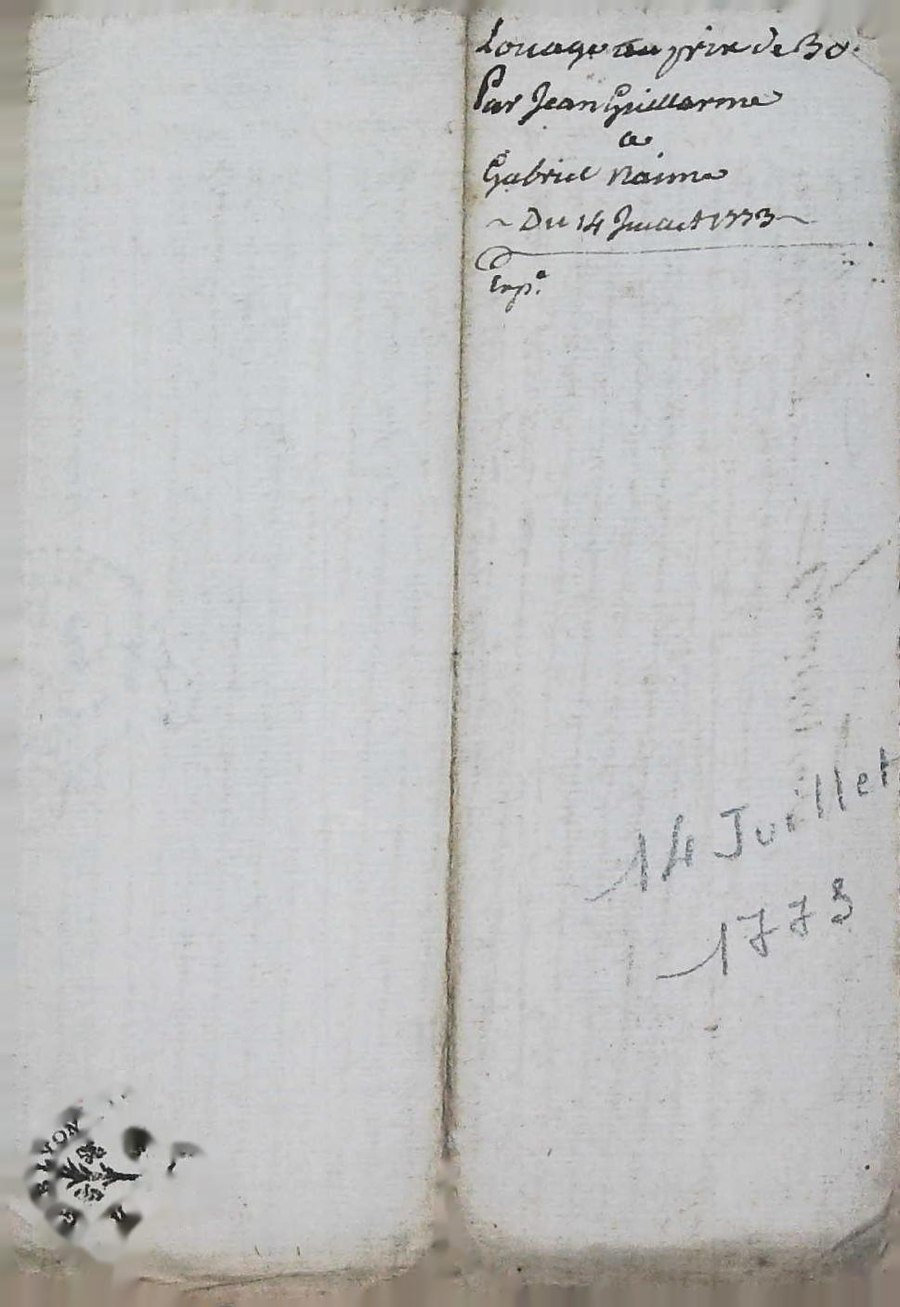 Louage au prix de 30.
Par Jean Guillarme
a
Gabriel Naime
~ Du 14 Juillet 1773 ~
Exp.
14 Juillet
1773
LYON